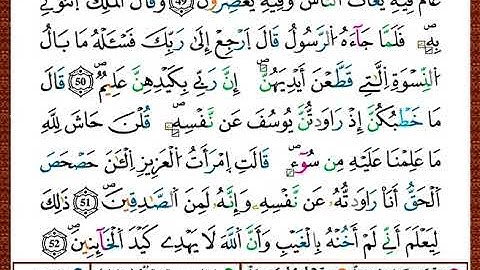 عَامٌ فِيهِ يُغَاثُ ٱلنَّاسُ وَفِيهِ يَعْصِرُونَ ٤٩ وَقَالَ ٱلْمَلِكُ ٱئْتُونِي
بِهِۦ ۖ فَلَمَّا جَآءَهُ ٱلرَّسُولُ قَالَ ٱرْجِعْ إِلَىٰ رَبِّكَ فَسْـَٔلْهُ مَا بَالُ
ٱلنِّسْوَةِ ٱلَّـٰتِي قَطَّعْنَ أَيْدِيَهُنَّ ۖ إِنَّ رَبِّي بِكَيْدِهِنَّ عَلِيمٌ ۖ ٥٠ قَالَ
مَا خَطْبُكُنَّ إِذْ رَٰوَدتُّنَّ يُوسُفَ عَن نَّفْسِهِۦ ۖ قُلْنَ حَـٰشَ لِلَّهِ
مَا عَلِمْنَا عَلَيْهِ مِن سُوٓءٍ ۖ قَالَتِ ٱمْرَأَتُ ٱلْعَزِيزِ ٱلْـَٔـٰنَ حَصْحَصَ
ٱلْحَقُّ أَنَا۠ رَٰوَدتُّهُۥ عَن نَّفْسِهِۦ وَإِنَّهُۥ لَمِنَ ٱلصَّـٰدِقِينَ ۖ ٥١ ذَٰلِكَ
لِيَعْلَمَ أَنِّي لَمْ أَخُنْهُ بِٱلْغَيْبِ وَأَنَّ ٱللَّهَ لَا يَهْدِي كَيْدَ ٱلْخَآئِنِينَ ۖ ٥٢